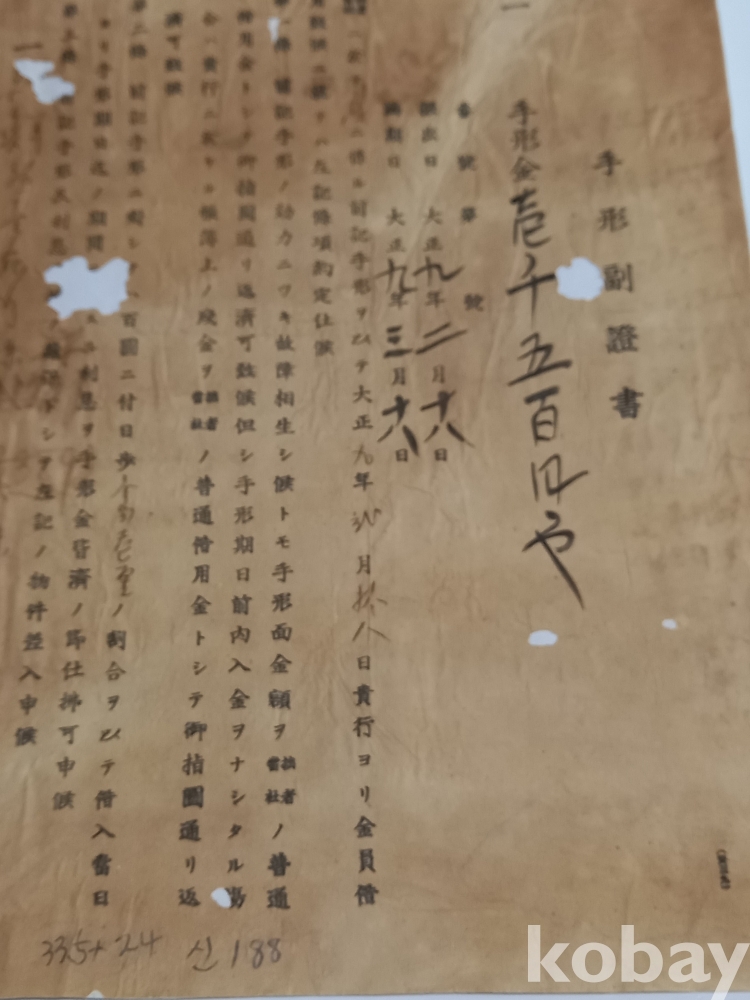 手形副證書
一
手形金壱千五百円也
番號第 號
振出日 大正九年二月十八日
満期日 大正九年三月十八日
ニ依ル前記手形ヲ以テ大正九年弐月拾八日貴行ヨリ金員借
左記條項約定仕候
前記手形ノ効力ニツキ故障相生シ候トモ手形面金額ヲ拙者當社ノ普通
借用金トシテ御指圖通リ返済可致候但シ手形期日前内入金ヲナシタル場
合ハ貴行ニ於ケル帳簿上ノ残金ヲ拙者當社ノ普通借用金トシテ御指圖通リ返
濟可致候
第二條 前記手形ニ對シテハ百圓ニ付日歩 ノ割合ヲ以テ借入當日
ヨリ手形期日迄ノ期間 ニ利息ヲ手形金皆済ノ節仕拂可申候
第三條 前記手形 利息 トシテ左記ノ物件差入申候
一
335+24 신188
kobay